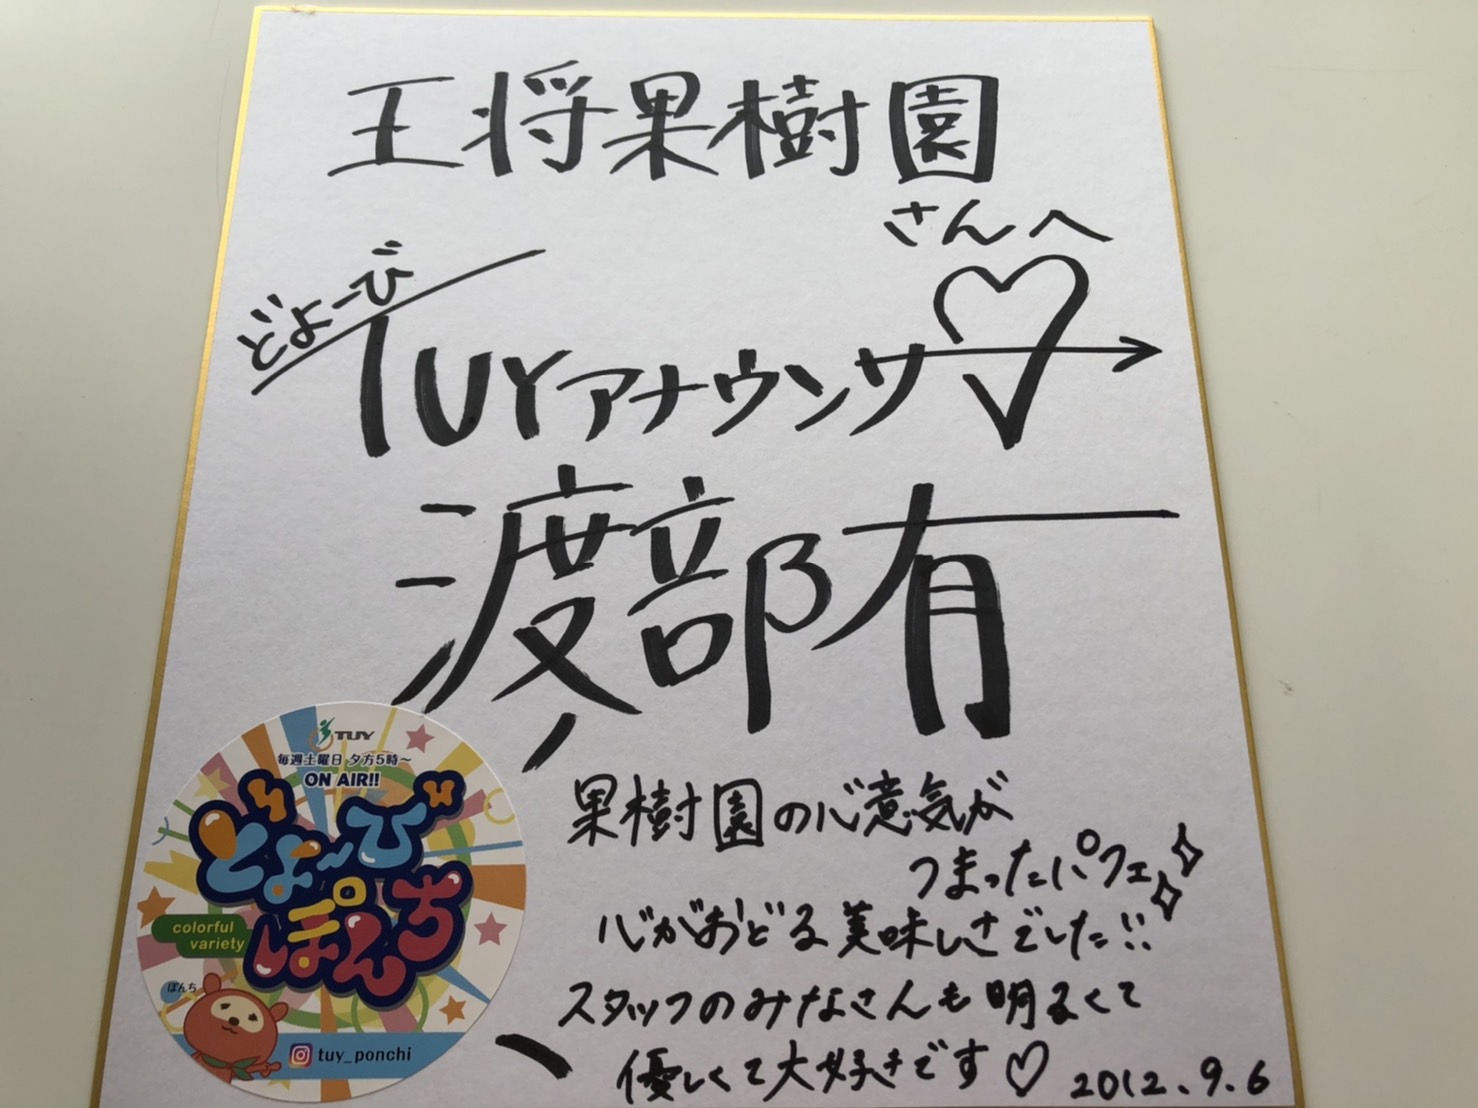 王将果樹園
さんへ
どよーび
TUYアナウンサー
渡部有
果樹園の心意気が
つまったパフェ
心がおどる美味しさでした!!
スタッフのみなさんも明るくて
優しくて大好きです♡ 2012.9.6
TUY
毎週土曜日 夕方5時〜
ON AIR!!
どよ〜び
ぽんち
colorful
variety
ぽんち
tuy_ponchi